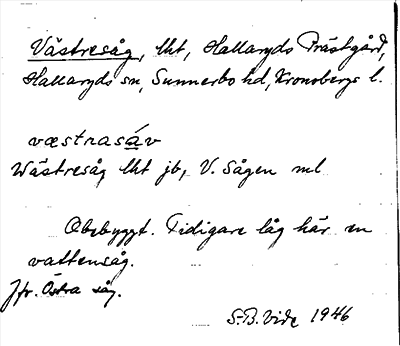 Västresåg, lht, Hallaryds Prästgård,
Hallaryds sn, Sunnerbo hd, Kronobergs l.
væstrasáv
Wästresåg lht jb, V. Sågen ml
Obebyggt. Tidigare låg här en
vattensåg.
Jfr. Östra såg.
S-B. Vide 1946